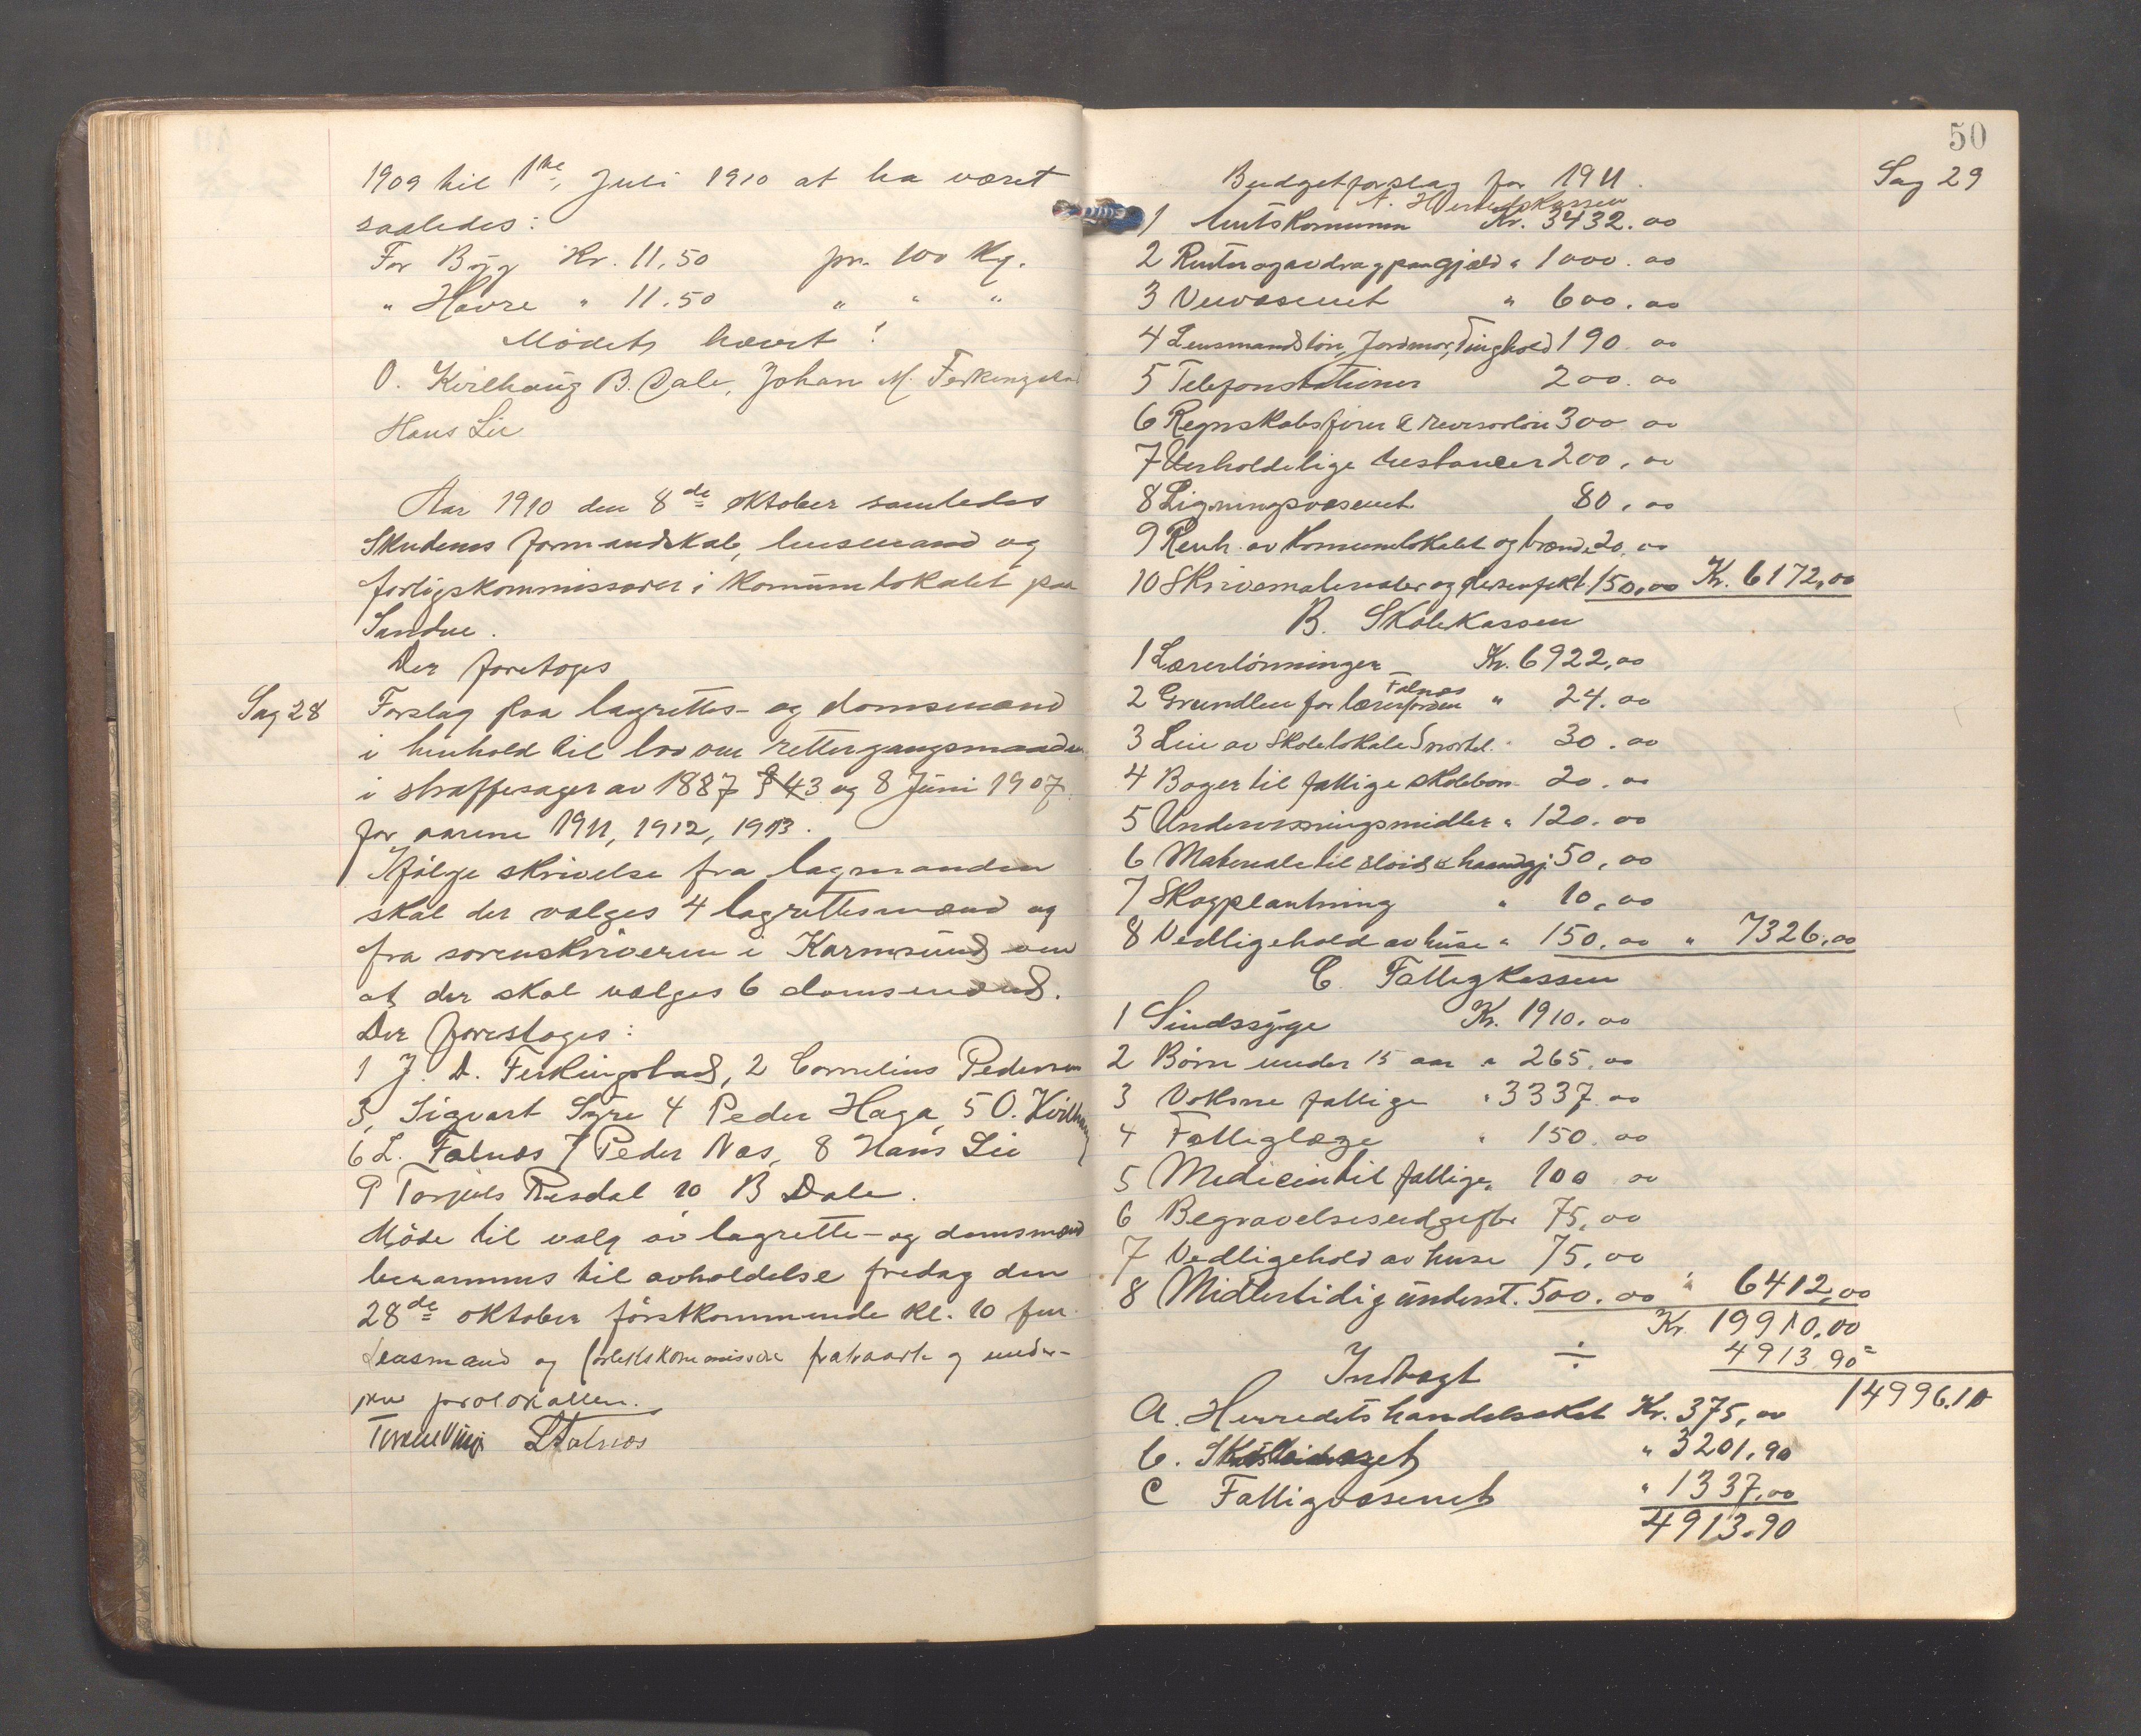 1909 til 1ste Juli 1910 at ha været
saaledes:
For Byg Kr. 11.50 pr. 100 Kg.
" Havre " 11.50 " " "
Mødet hævet!
O. Kvilhaug B. Dale, Johan M. Ferkingstad
Hans Lie
Aar 1910 den 8de oktober samledes
Skudenes formandskab, lensmand og
forligskommissærer i Komunelokalet paa
Sandve.
Der foretoges
Sag 28
Forslag paa lagrettes- og domsmænd
i henhold til lov om rettergangsmaaden
i straffesager av 1887 § 43 og 8 Juni 1907
for aarene 1911, 1912, 1913.
Ifölge skrivelse fra lagmanden
skal der vælges 4 lagrettesmænd og
fra sorenskriveren i Karmsund om
at der skal vælges 6 domsmænd.
Der foreslages:
1 J. D. Ferkingstad, 2 Cornelius Pedersen
3, Sigvart Syre 4 Peder Haga, 5 O. Kvilhaug
6 L. Falnæs 7 Peder Næs, 8 Hans Lie
9 Torjuls Risdal 10 B Dale.
Möde til valg av lagrette- og domsmænd
berammes til avholdelse fredag den
28de oktober förstkommende kl. 10 fm.
Lensmand og forlikskommissær fratraadte og under-
skrev protokollen.
L Falnæs
50
Sag 29
Budgetforslag for 1911.
A. Herredskassen
1 Amtskomunen Kr. 3432.00
2 Renter og avdrag paa gjæld " 1000.00
3 Veivæsenet " 600.00
4 Lensmandslön, Jordmor, Tinghold 190.00
5 Telefonstationer 200.00
6 Regnskabsförer & revisorlön 300.00
7 Uerholdelige restancer 200.00
8 Ligningsvæsenet 80.00
9 Renh. av Komunelokalet og brænde 20.00
10 Skrivematerialer og desenfekt. 150.00 Kr. 6172,00
B. Skolekassen
1 Lærerlönninger Kr. 6922,00
2 Grundleie for lærerjorden Falnæs " 24.00
3 Leie av Skolelokale Snørtel. 30.00
4 Böger til fattige skolebörn 20.00
5 Undervisningsmidler " 120.00
6 Materiale til slöid & haandgj. 50,00
7 Skogplantning " 10,00
8 Vedligehold av huse " 150,00 " 7326,00
C. Fattigkassen
1 Sindssyge Kr. 1910.00
2 Börn under 15 aar " 265.00
3 Voksne fattige " 3337.00
4 Fattiglæge " 150.00
5 Medicin til fattige " 100 00
6 Begravelsesudgifter 75,00
7 Vedligehold av huse 75,00
8 Midlertidig underst. 500.00 " 6412,00
Kr. 19910,00
÷ 4913.90
Indtægt
14996.10
A. Herredets handelsskat Kr. 375,00
b. " 3201.90
C Fattigvæsenet " 1337,00
4913.90